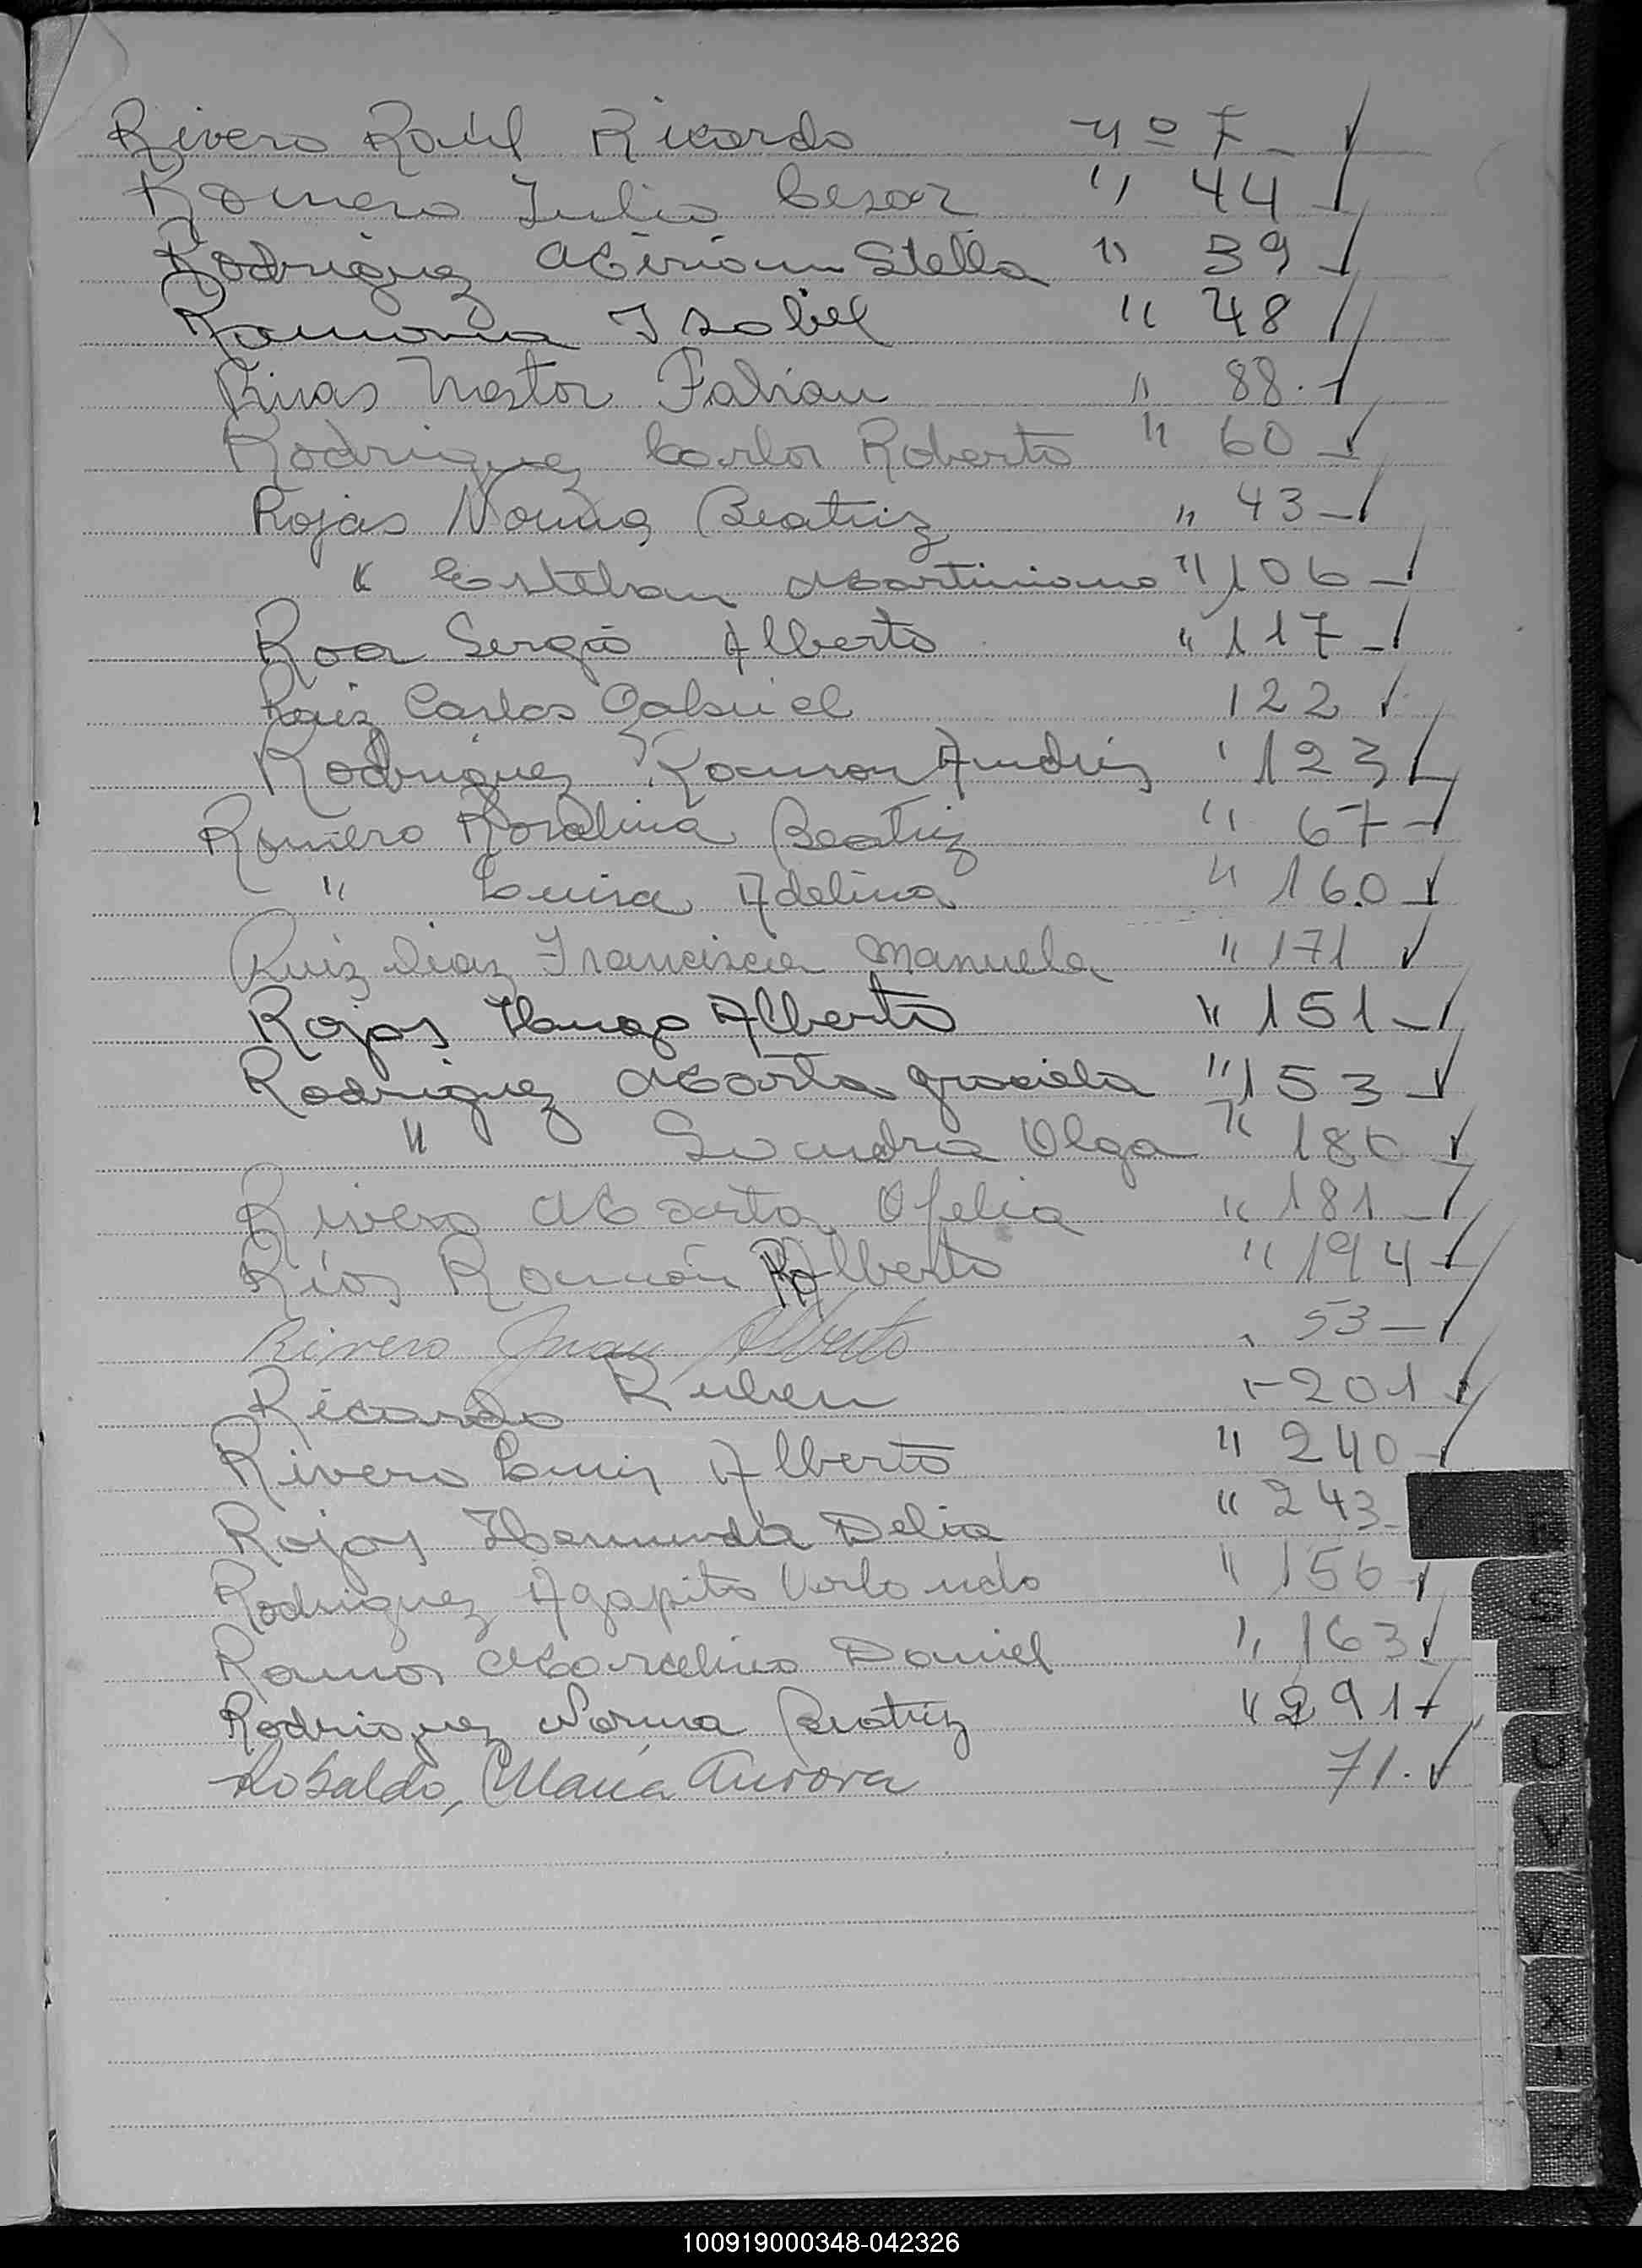 Rivero Raúl Ricardo nº 7 -
Romero Julio Cesar " 44 -
Rodriguez Miriam Stella " 39 -
Ramona Isabel " 48
Rivas Nestor Fabian " 88. -
Rodriguez Carlos Roberto " 60 -
Rojas Norma Beatriz " 43 -
" Esteban Martiniano " 106 -
Roa Sergio Alberto " 117 -
Ruiz Carlos Gabriel 122
Rodriguez Ramon Andrés " 123
Romero Rosalina Beatriz " 67 -
" Luisa Adelina " 160 -
Ruiz Diaz Francisca Manuela " 171
Rojas Hugo Alberto " 151 -
Rodriguez Marta Graciela " 153 -
" Sandra Olga " 180
Rivero Marta Ofelia " 181 -
Ríos Ramón Alberto " 194 -
Rivero Juan Alberto " 53 -
Ricardo Ruben " 201 -
Rivero Luis Alberto " 240 -
Rojas Delia " 243 -
Rodriguez Agapito " 156 -
Ramos Marcelino Daniel " 163
Rodriguez Norma Beatriz " 291 -
Robaldo, Maria Aurora 71.
R
S
T
U
V
W
X
Y
Z
100919000348-042326